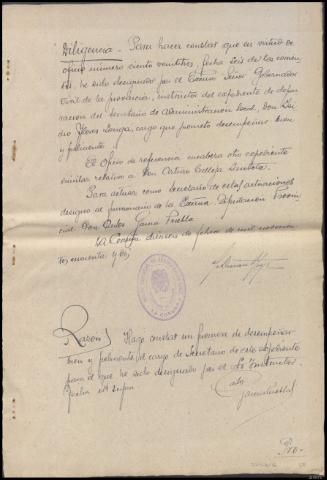 Diligencia.- Para hacer constar que en virtud de
oficio número ciento veintitres, fecha seis de los corrien
tes, he sido designado por el Excmo Señor Gobernador
Civil de la provincia, instructor del expediente de depu
racion del secretario de administración local, Don
Flores, cargo que prometo desempeñar bien
y fielmente.
El oficio de referencia encabeza otro expediente
similar relativo a Don Arturo
Para actuar como secretario de estas actuaciones
designo al funcionario de la Excma. Diputación Provin
cial Don Garcia
La Coruña de mil novecien
tos cuarenta y
LA CORUÑA
Razon) Hago constar mi promesa de desempeñar
bien y fielmente el cargo de Secretario de este expediente
para el que he sido designado por el Sr Instructor
fecha ut supra.
Pro-